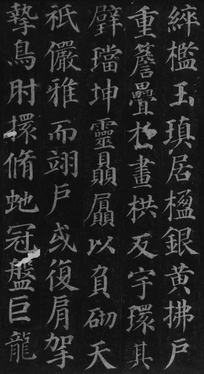 綷檻玉瑱居楹銀黃拂戶
重簷疊於畫栱反宇環其
壁璫坤靈贔屭以負砌天
祇儼雅而翊戶或復肩挐
摯鳥肘擐脩虵冠盤巨龍